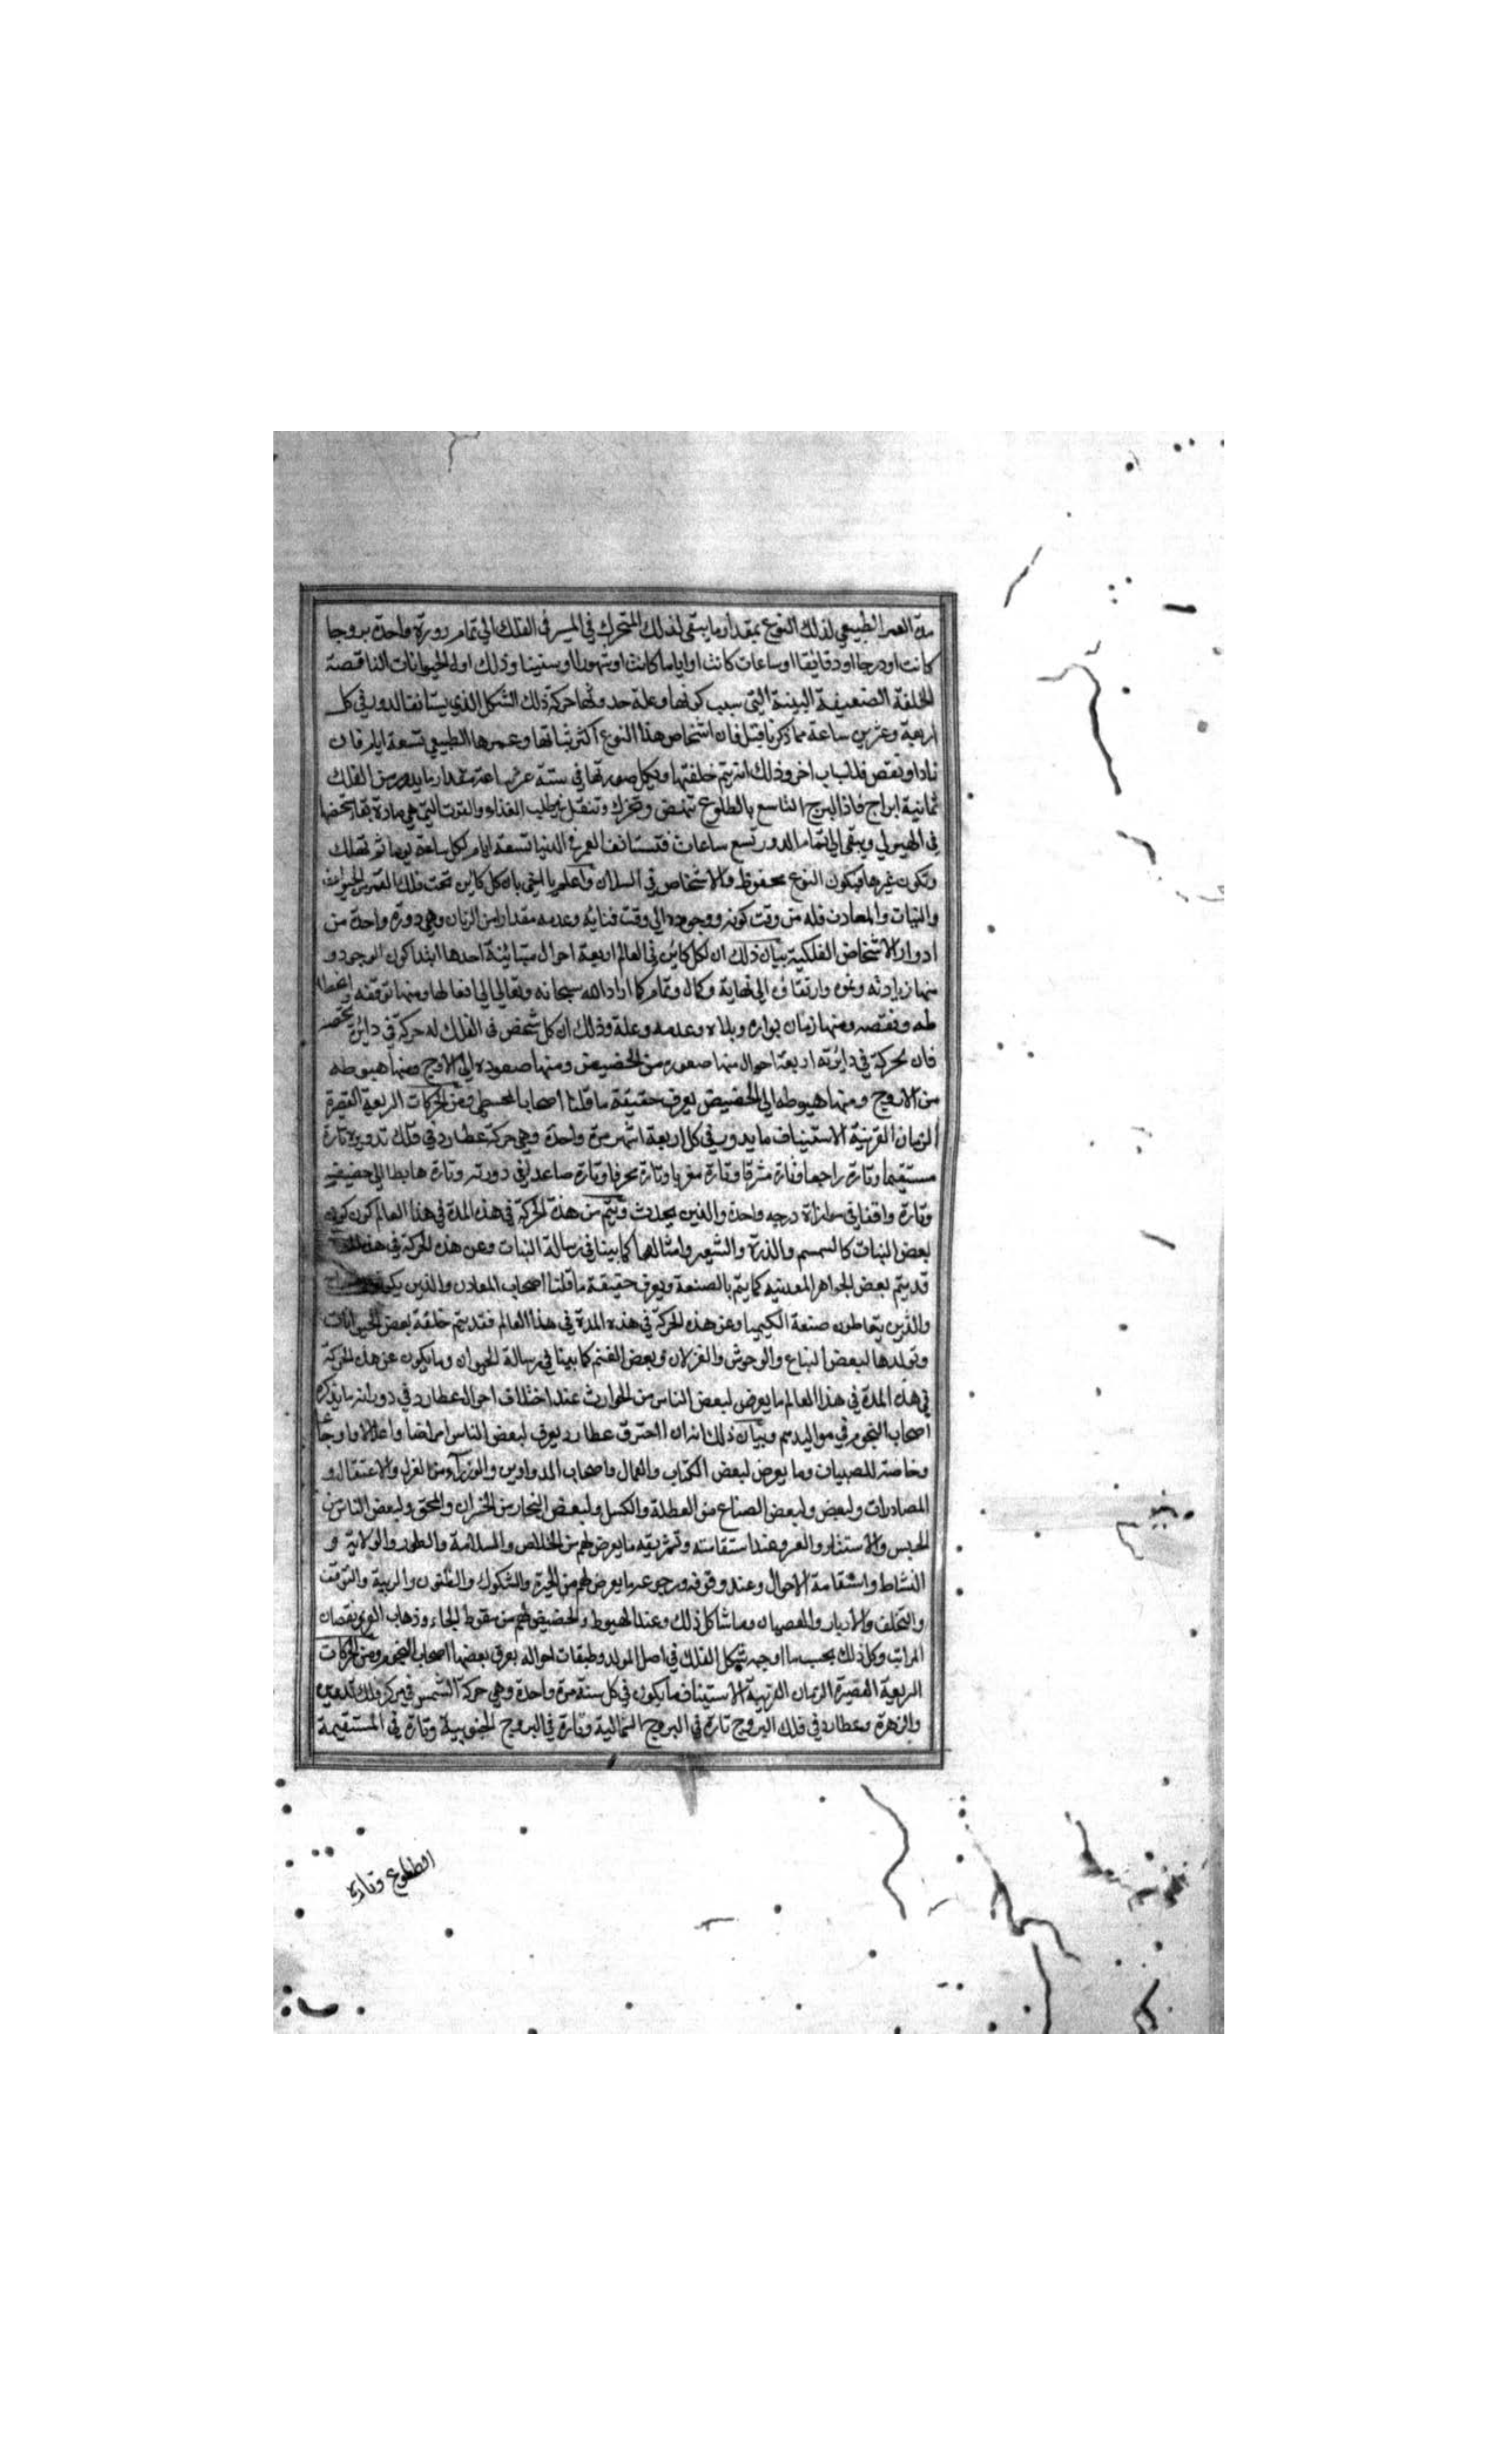 مدة العمر الطبيعي لذلك النوع بمقدار ما يبقى لذلك المتحرك في المسير في الفلك الي تمام دورة واحدة بروجا
كانت او درجا او دقائقا او ساعات كانت او اياما كانت او شهورا او سنينا وذلك اول الحيوانات الناقصة
الخلقة الضعيفة البنية التي سبب كونها وعلة حدوثها حركة ذلك الشكل الذي يستانف الدور في كل
اربعة وعشرين ساعة مما ذكرنا قبل فان اشخاص هذا النوع اكثر ثباتها وعمرها الطبيعي تسعة ايام فان
زاد او نقص فلاسباب اخر وذلك انه يتم خلقتها ويكمل صورتها في ستة عشر ساعة مقدار ما يدور من الفلك
ثمانية ابراج فاذا البرج التاسع بالطلوع تنهض وتتحرك وتنتقل في طلب الغذاء والقوت التي هي مادة بقاء شخصها
في الهيولي ويبقى الي تمام الدور تسع ساعات فتستانف العمر في الدنيا تسعة ايام لكل ساعة يوما ثم تهلك
وتكون غيرها فيكون النوع محفوظ والاشخاص في السلان واعلم يا اخي بان كل كاين تحت فلك القمر من الحيوانات
والنبات والمعادن فله من وقت كونه ووجوده الي وقت فنايه وعدمه مقدارا من الزمان وهي دورة واحدة من
ادوار الاشخاص الفلكية بيان ذلك ان لكل كاين في العالم اربعة احوال متبائنة احدها ابتدا كون الوجود و
منها زيادته ونموه وارتقاؤه الي نهاية وكمال وتمام كما اراد الله سبحانه وتعالى الي افعالها ومنها توقفه وانحطا
طه ونقصه ومنها زمان بواره وبلاه وعدمه وعلة وذلك ان كل شخص في الفلك له حركة في دائرة تختصه
فان بحركة في دائرته اربعة احوال منها صعوده من الحضيض ومنها صعوده الي الاوج ومنها هبوطه
من الاوج ومنها هبوطه الي الحضيض يعرف حقيقة ما قلنا اصحاب المجسطي ومن الحركات السريعة القصيرة
الزمان القريبة الاستيناف ما يدور في كل اربعة اشهر مرة واحدة وهي حركة عطارد في فلك تدويره تارة
مستقيما وتارة راجعا وتارة مشرقا وتارة مغربا وتارة محرفا وتارة صاعدا في دورته وتارة هابطا الي حضيضه
وتارة واقفا في موازاة درجه واحدة والذين يحدث ويتم من هذه الحركة في هذه المدة في هذا العالم كون كونه
بعض النبات كالسمسم والذرة والشعير وامثالها كما بينا في رسالة النبات وعن هذه الحركة في هذه
قد يتم بعض الجواهر المعدنيه كما يتم بالصنعة ويعرف حقيقة ما قلنا اصحاب المعادن والذين
والذين يتعاطون صنعة الكيميا وعن هذه الحركة في هذه المدة في هذا العالم فقد يتم خلقة بعض الحيوانات
وتولدها لبعض السباع والوحوش والغزلان وبعض الغنم كما بينا في رسالة الحيوان وما يكون عن هذه الحركة
في هذه المدة في هذا العالم ما يعرض لبعض الناس من الحوادث عند اختلاف احوال عطارد في دورانه ما يذكره
اصحاب النجوم في مواليدهم وبيان ذلك انه ان احترق عطارد يعرف لبعض الناس امراضا واعلالا واوجاعا
وخاصة للصبيان وما يعرض لبعض الكتاب والعمال واصحاب الدواوين والوزرآء من العزل والاعتقال و
المصادرات ولبعض ولبعض الصناع من العطلة والكسل ولبعض التجار من الخسران والمحق ولبعض الناس من
الحبس والاستتار والغم وعند استقامته وتشريقه ما يعرض لهم من الخلاص والسلامة والظهور والولاية و
النشاط واستقامة الاحوال وعند وقوفه ورجوعه ما يعرض لهم من الحيرة والشكوك والظنون والريبة والتوقف
والتخلف والادبار والعصيان وما شاكل ذلك وعند الهبوط والحضيض لهم من سقوط الجاه وذهاب العز ونقصان
المراتب وكل ذلك بحسب ما اوجبه شكل الفلك في اصل المولد وطبقات احواله يعرف بعضها اصحاب النجوم ومن الحركات
السريعة القصيرة الزمان القريبة الاستيناف ما يكون في كل سنة مرة واحدة وهي حركة الشمس في مركز فلك تدوير
والزهرة وعطارد في فلك البروج تارة في البروج الشمالية وتارة في البروج الجنوبية وتارة في المستقيمة
الطلوع وتارة